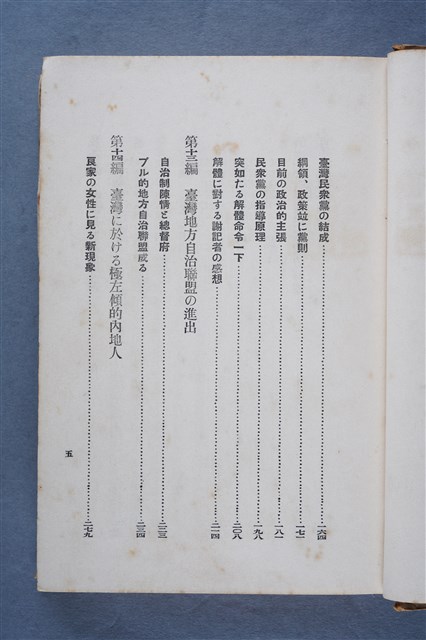 臺灣民衆黨の結成……一六四
綱領、政策竝に黨則……一七一
目前の政治的主張……一八一
民衆黨の指導原理……一九八
突如たる解體命令一下……二〇八
解體に對する謝記者の感想……二一四
第十三編　臺灣地方自治聯盟の進出
自治制陳情と總督府……二二三
ブル的地方自治聯盟成る……二三四
第十四編　臺灣に於ける極左傾的內地人
良家の女性に見る新現象……二七九
五